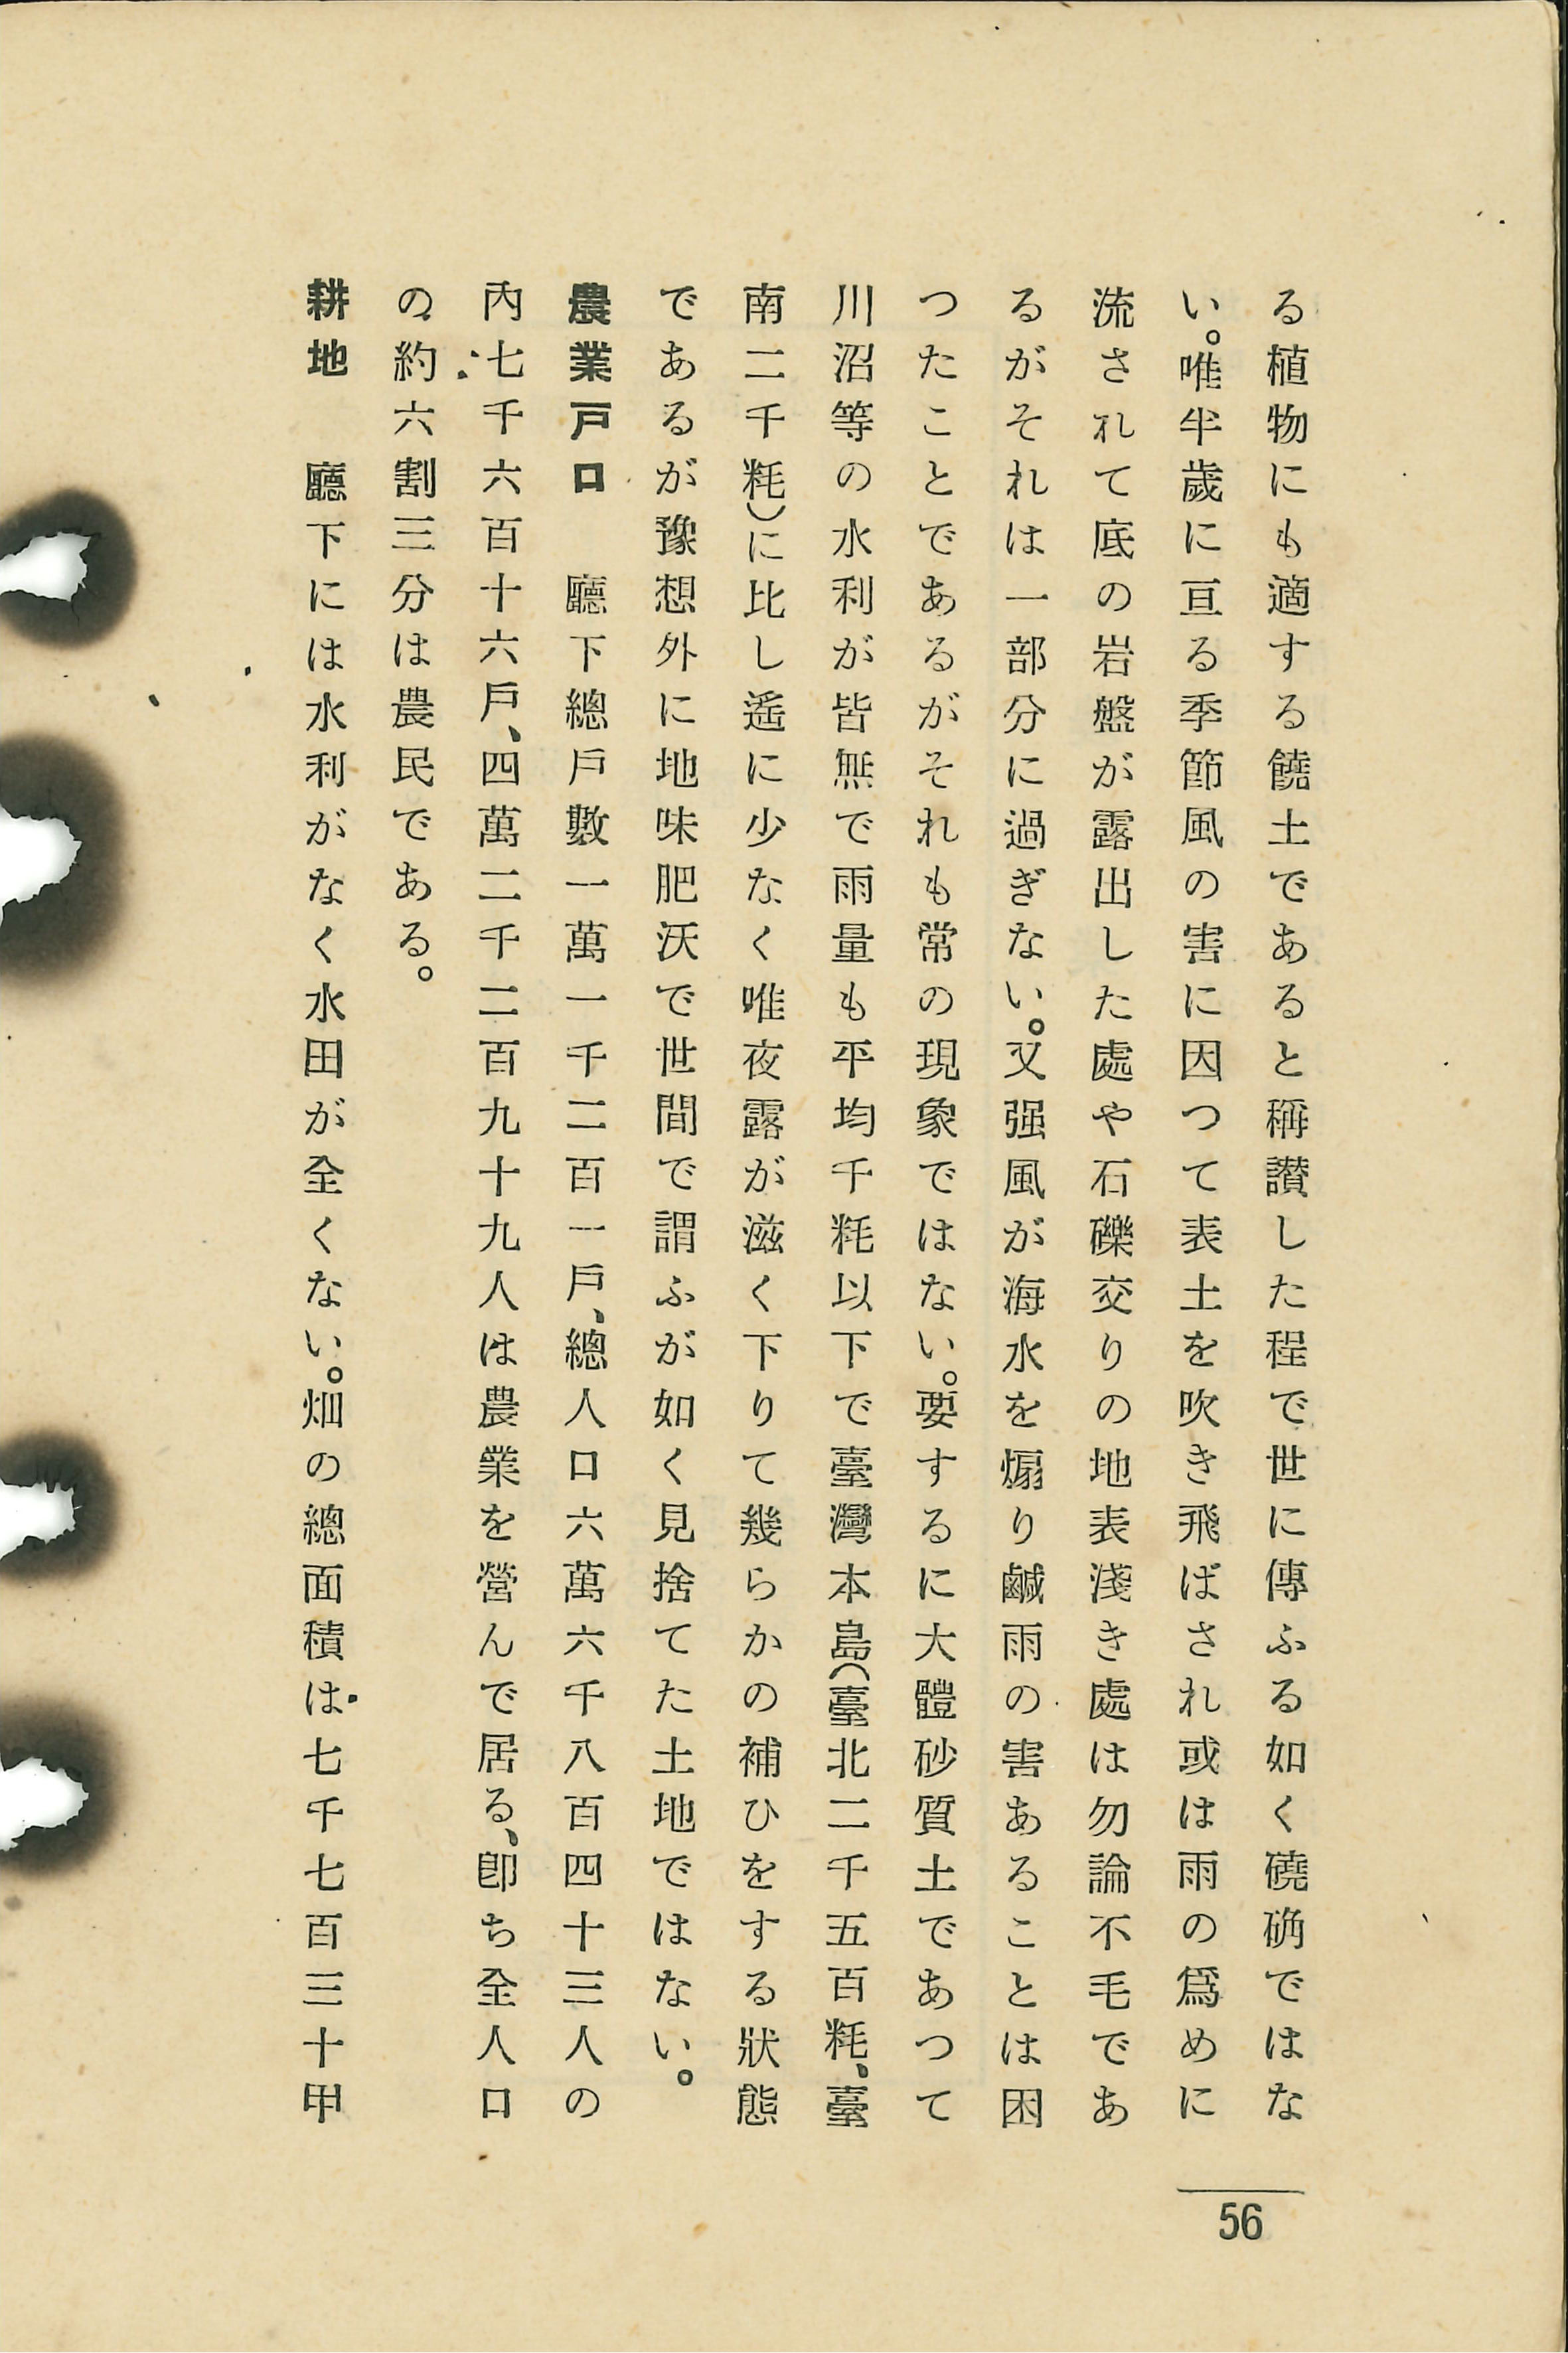 る植物にも適する饒土であると稱讃した程で世に傳ふる如く磽确ではな
い。唯半歲に亘る季節風の害に因つて表土を吹き飛ばされ或は雨の爲めに
流されて底の岩盤が露出した處や石礫交りの地表淺き處は勿論不毛であ
るがそれは一部分に過ぎない。又强風が海水を煽り鹹雨の害あることは困
つたことであるがそれも常の現象ではない。要するに大體砂質土であつて
川沼等の水利が皆無で雨量も平均千粍以下で臺灣本島(臺北二千五百粍、臺
南二千粍)に比し遙に少なく唯夜露が滋く下りて幾らかの補ひをする狀態
であるが豫想外に地味肥沃で世間で謂ふが如く見捨てた土地ではない。
農業戸口　廳下總戶數一萬一千二百一戶、總人口六萬六千八百四十三人の
內七千六百十六戶、四萬二千二百九十九人は農業を營んで居る、卽ち全人口
の約六割三分は農民である。
耕地　廳下には水利がなく水田が全くない。畑の總面積は七千七百三十甲
56